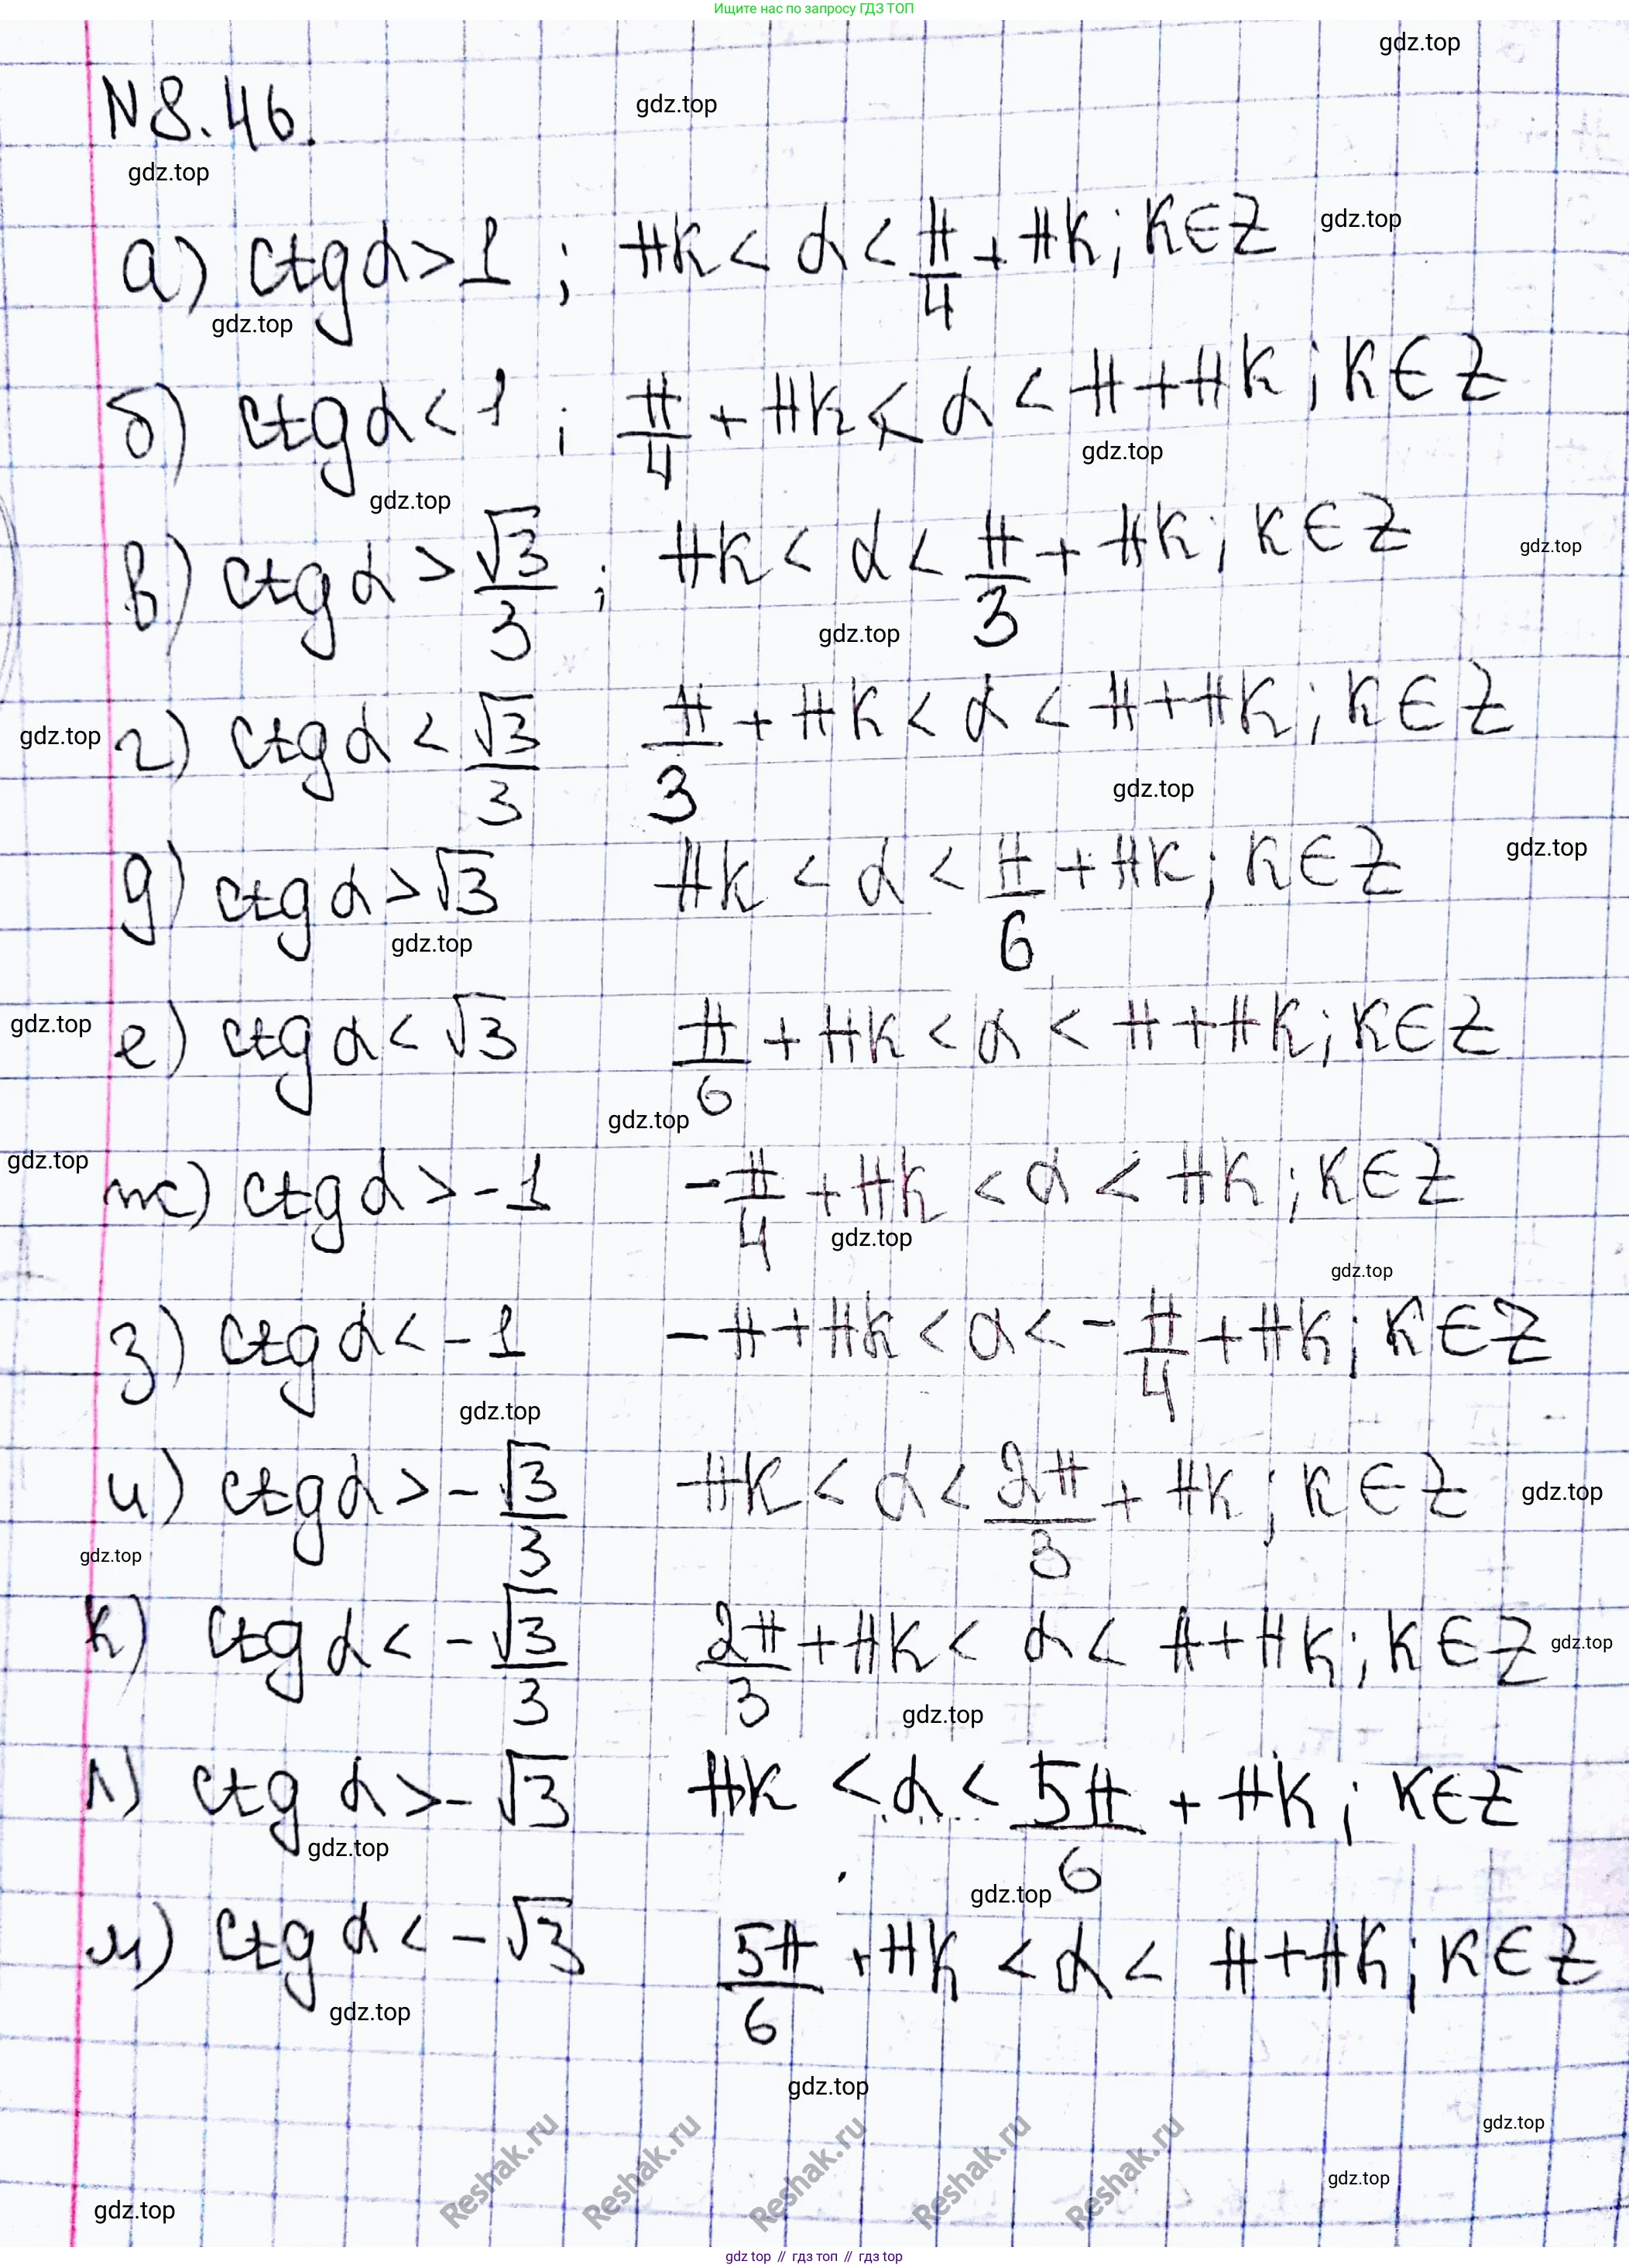 Ищите нас по запросу ГДЗ ТОП
gdz.top
N 8.46.
gdz.top
gdz.top
а) ctg α > 1 ; πk < α < π/4 + πk; k ∈ Z
gdz.top
gdz.top
б) ctg α < 1 ; π/4 + πk < α < π + πk; k ∈ Z
gdz.top
gdz.top
в) ctg α > √3/3 ; πk < α < π/3 + πk; k ∈ Z
gdz.top
gdz.top
г) ctg α < √3/3 π/3 + πk < α < π + πk; k ∈ Z
gdz.top
gdz.top
д) ctg α > √3 πk < α < π/6 + πk; k ∈ Z
gdz.top
gdz.top
е) ctg α < √3 π/6 + πk < α < π + πk; k ∈ Z
gdz.top
gdz.top
ж) ctg α > -1 -π/4 + πk < α < πk; k ∈ Z
gdz.top
gdz.top
gdz.top
з) ctg α < -1 -π + πk < α < -π/4 + πk; k ∈ Z
gdz.top
и) ctg α > -√3/3 πk < α < 2π/3 + πk; k ∈ Z
gdz.top
gdz.top
к) ctg α < -√3/3 2π/3 + πk < α < π + πk; k ∈ Z
gdz.top
gdz.top
л) ctg α > -√3 πk < α < 5π/6 + πk; k ∈ Z
gdz.top
gdz.top
м) ctg α < -√3 5π/6 + πk < α < π + πk; k ∈ Z
gdz.top
gdz.top
gdz.top
Reshak.ru Reshak.ru Reshak.ru Reshak.ru Reshak.ru
gdz.top
gdz.top
gdz top // гдз топ // гдз top